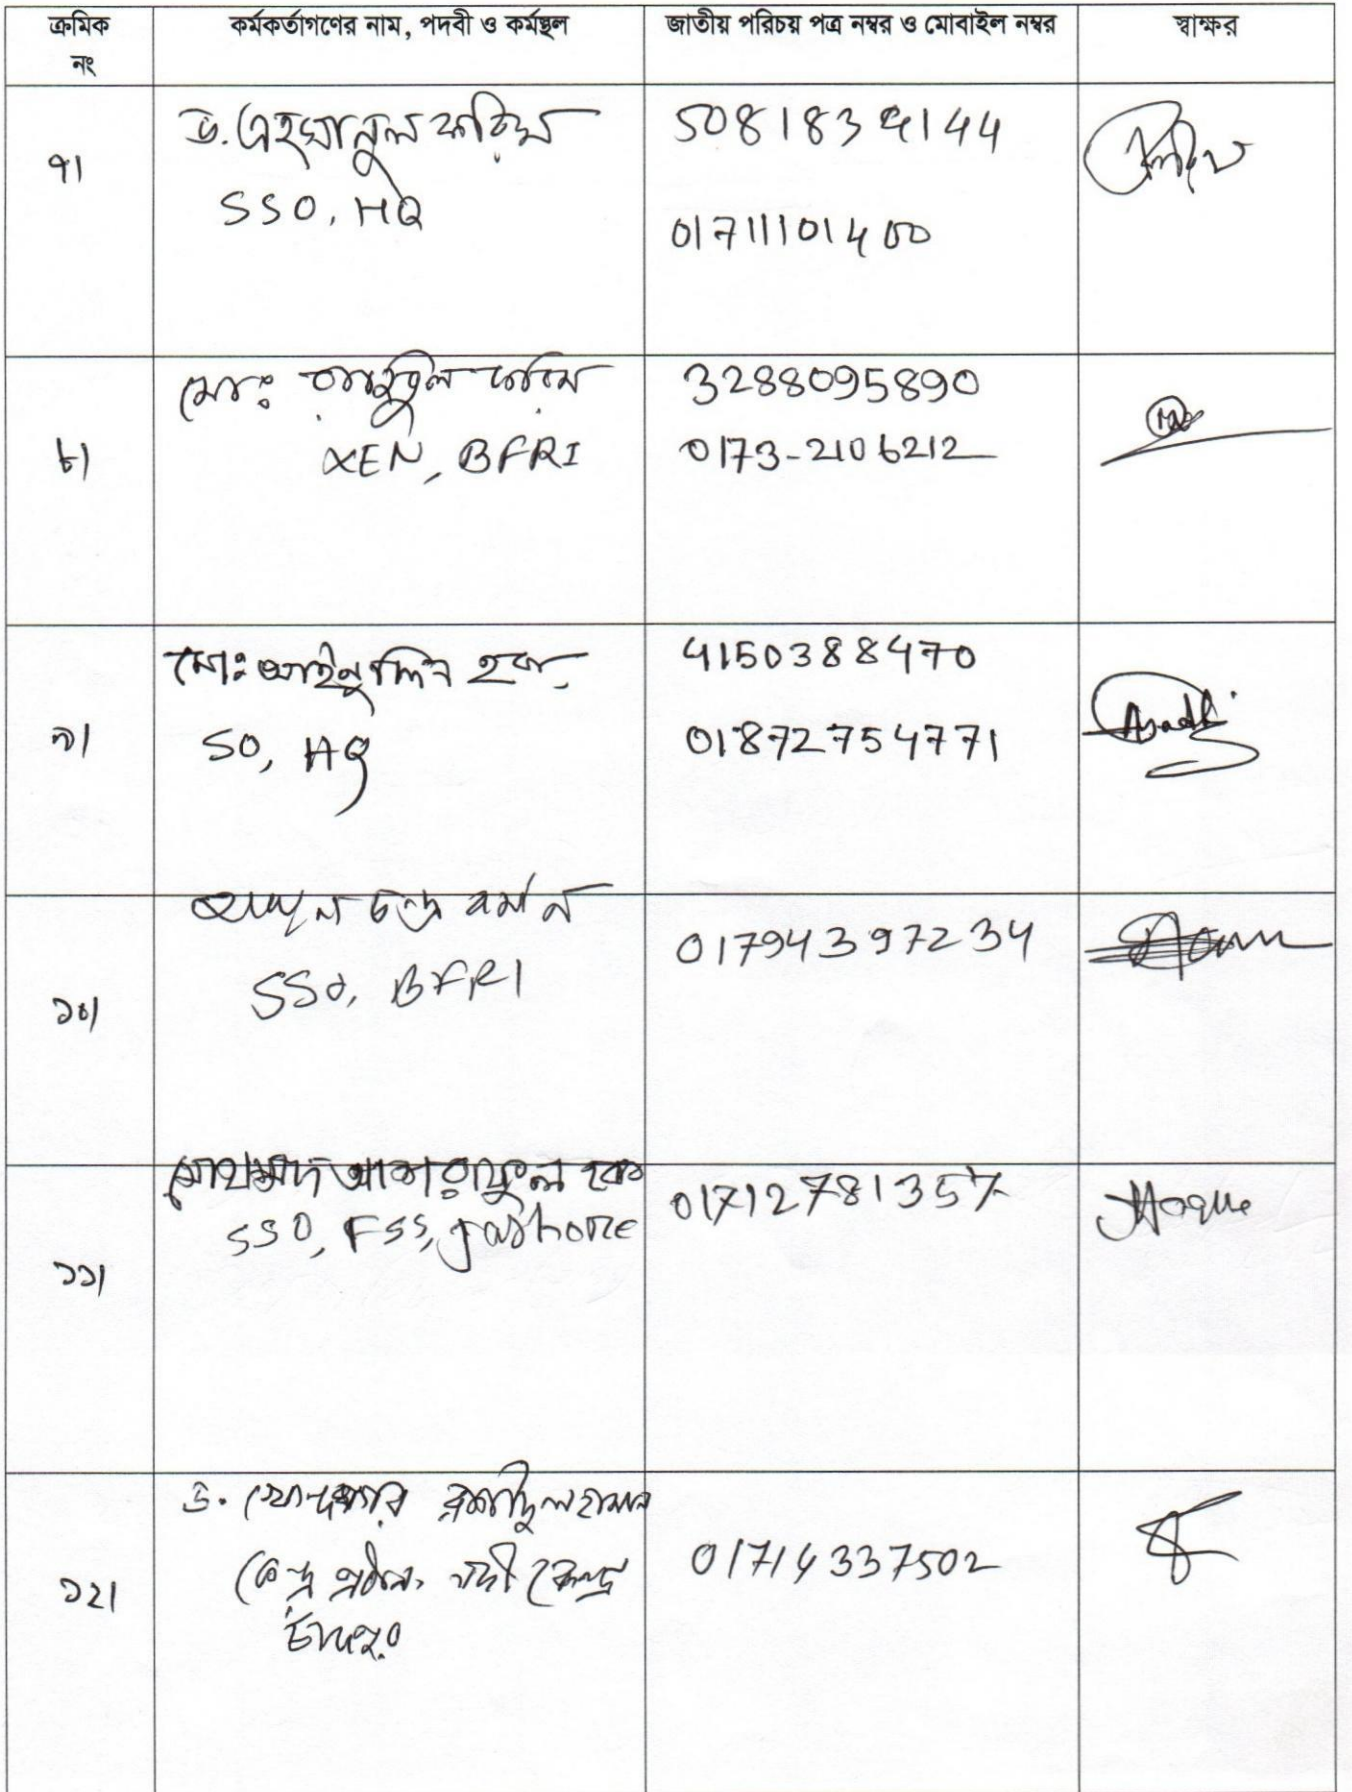 ক্রমিক নং
কর্মকর্তাগণের নাম, পদবী ও কর্মস্থল
জাতীয় পরিচয় পত্র নম্বর ও মোবাইল নম্বর
স্বাক্ষর
৭।
ড. এহসানুল করিম
SSO, HQ
5081834144
01711101400
৮।
মোঃ করিম
XEN, BFRI
3288095890
0173-2106212
৯।
মোঃ হক
SO, HQ
4150388470
01872754771
১০।
চন্দ্র বর্মন
SSO, BFRI
01794397234
১১।
মোহাম্মদ আশরাফুল হক
SSO, FSS, Jashore
01712781357
Hoque
১২।
ড. খোন্দকার রশীদুল হাসান
কেন্দ্র প্রধান, নদী কেন্দ্র
চাঁদপুর
01714337502